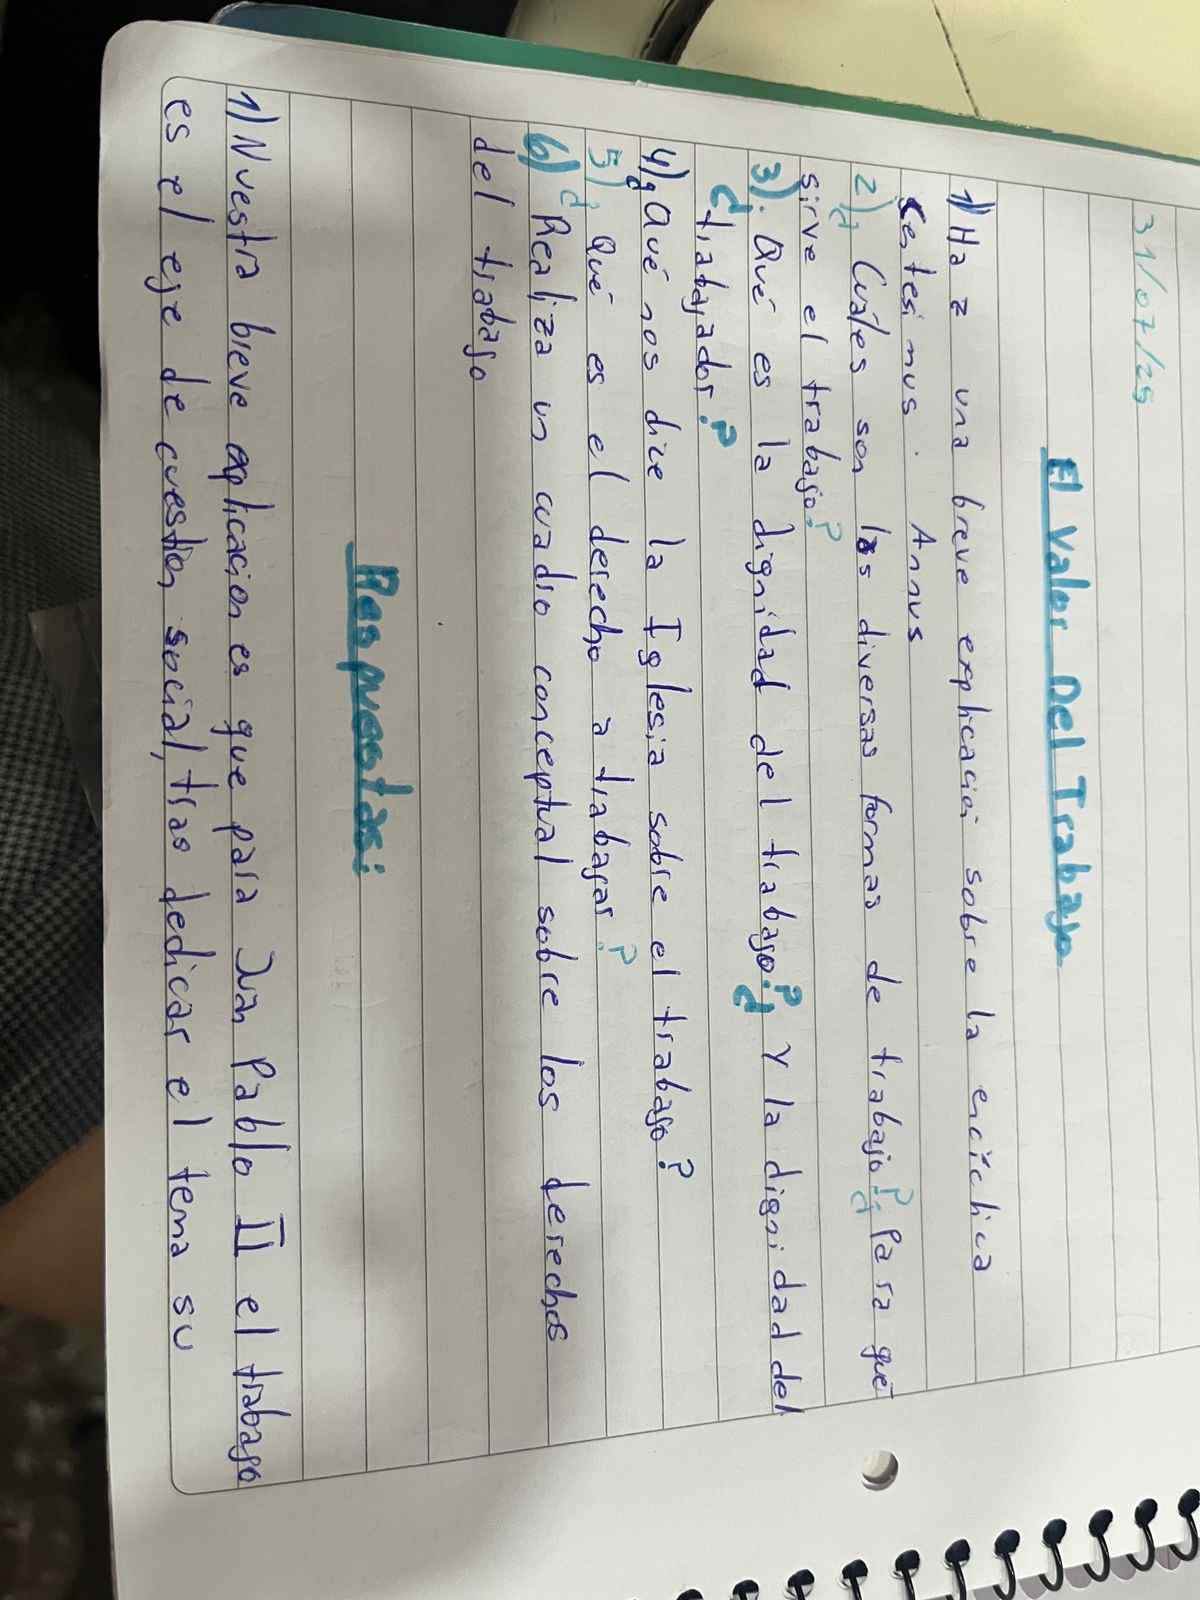 31/07/25
El Valor Del Trabajo
1) Haz una breve explicación sobre la encíclica
Centesimus Annus
2) ¿Cuáles son las diversas formas de trabajo? ¿Para qué
sirve el trabajo?
3) ¿Qué es la dignidad del trabajo? ¿Y la dignidad del
trabajador?
4) ¿Qué nos dice la Iglesia sobre el trabajo?
5) ¿Qué es el derecho a trabajar?
6) Realiza un cuadro conceptual sobre los derechos
del trabajo
Respuestas:
1) Nuestra breve explicacion es que para Juan Pablo II el trabajo
es el eje de cuestion social, tras dedicar el tema su